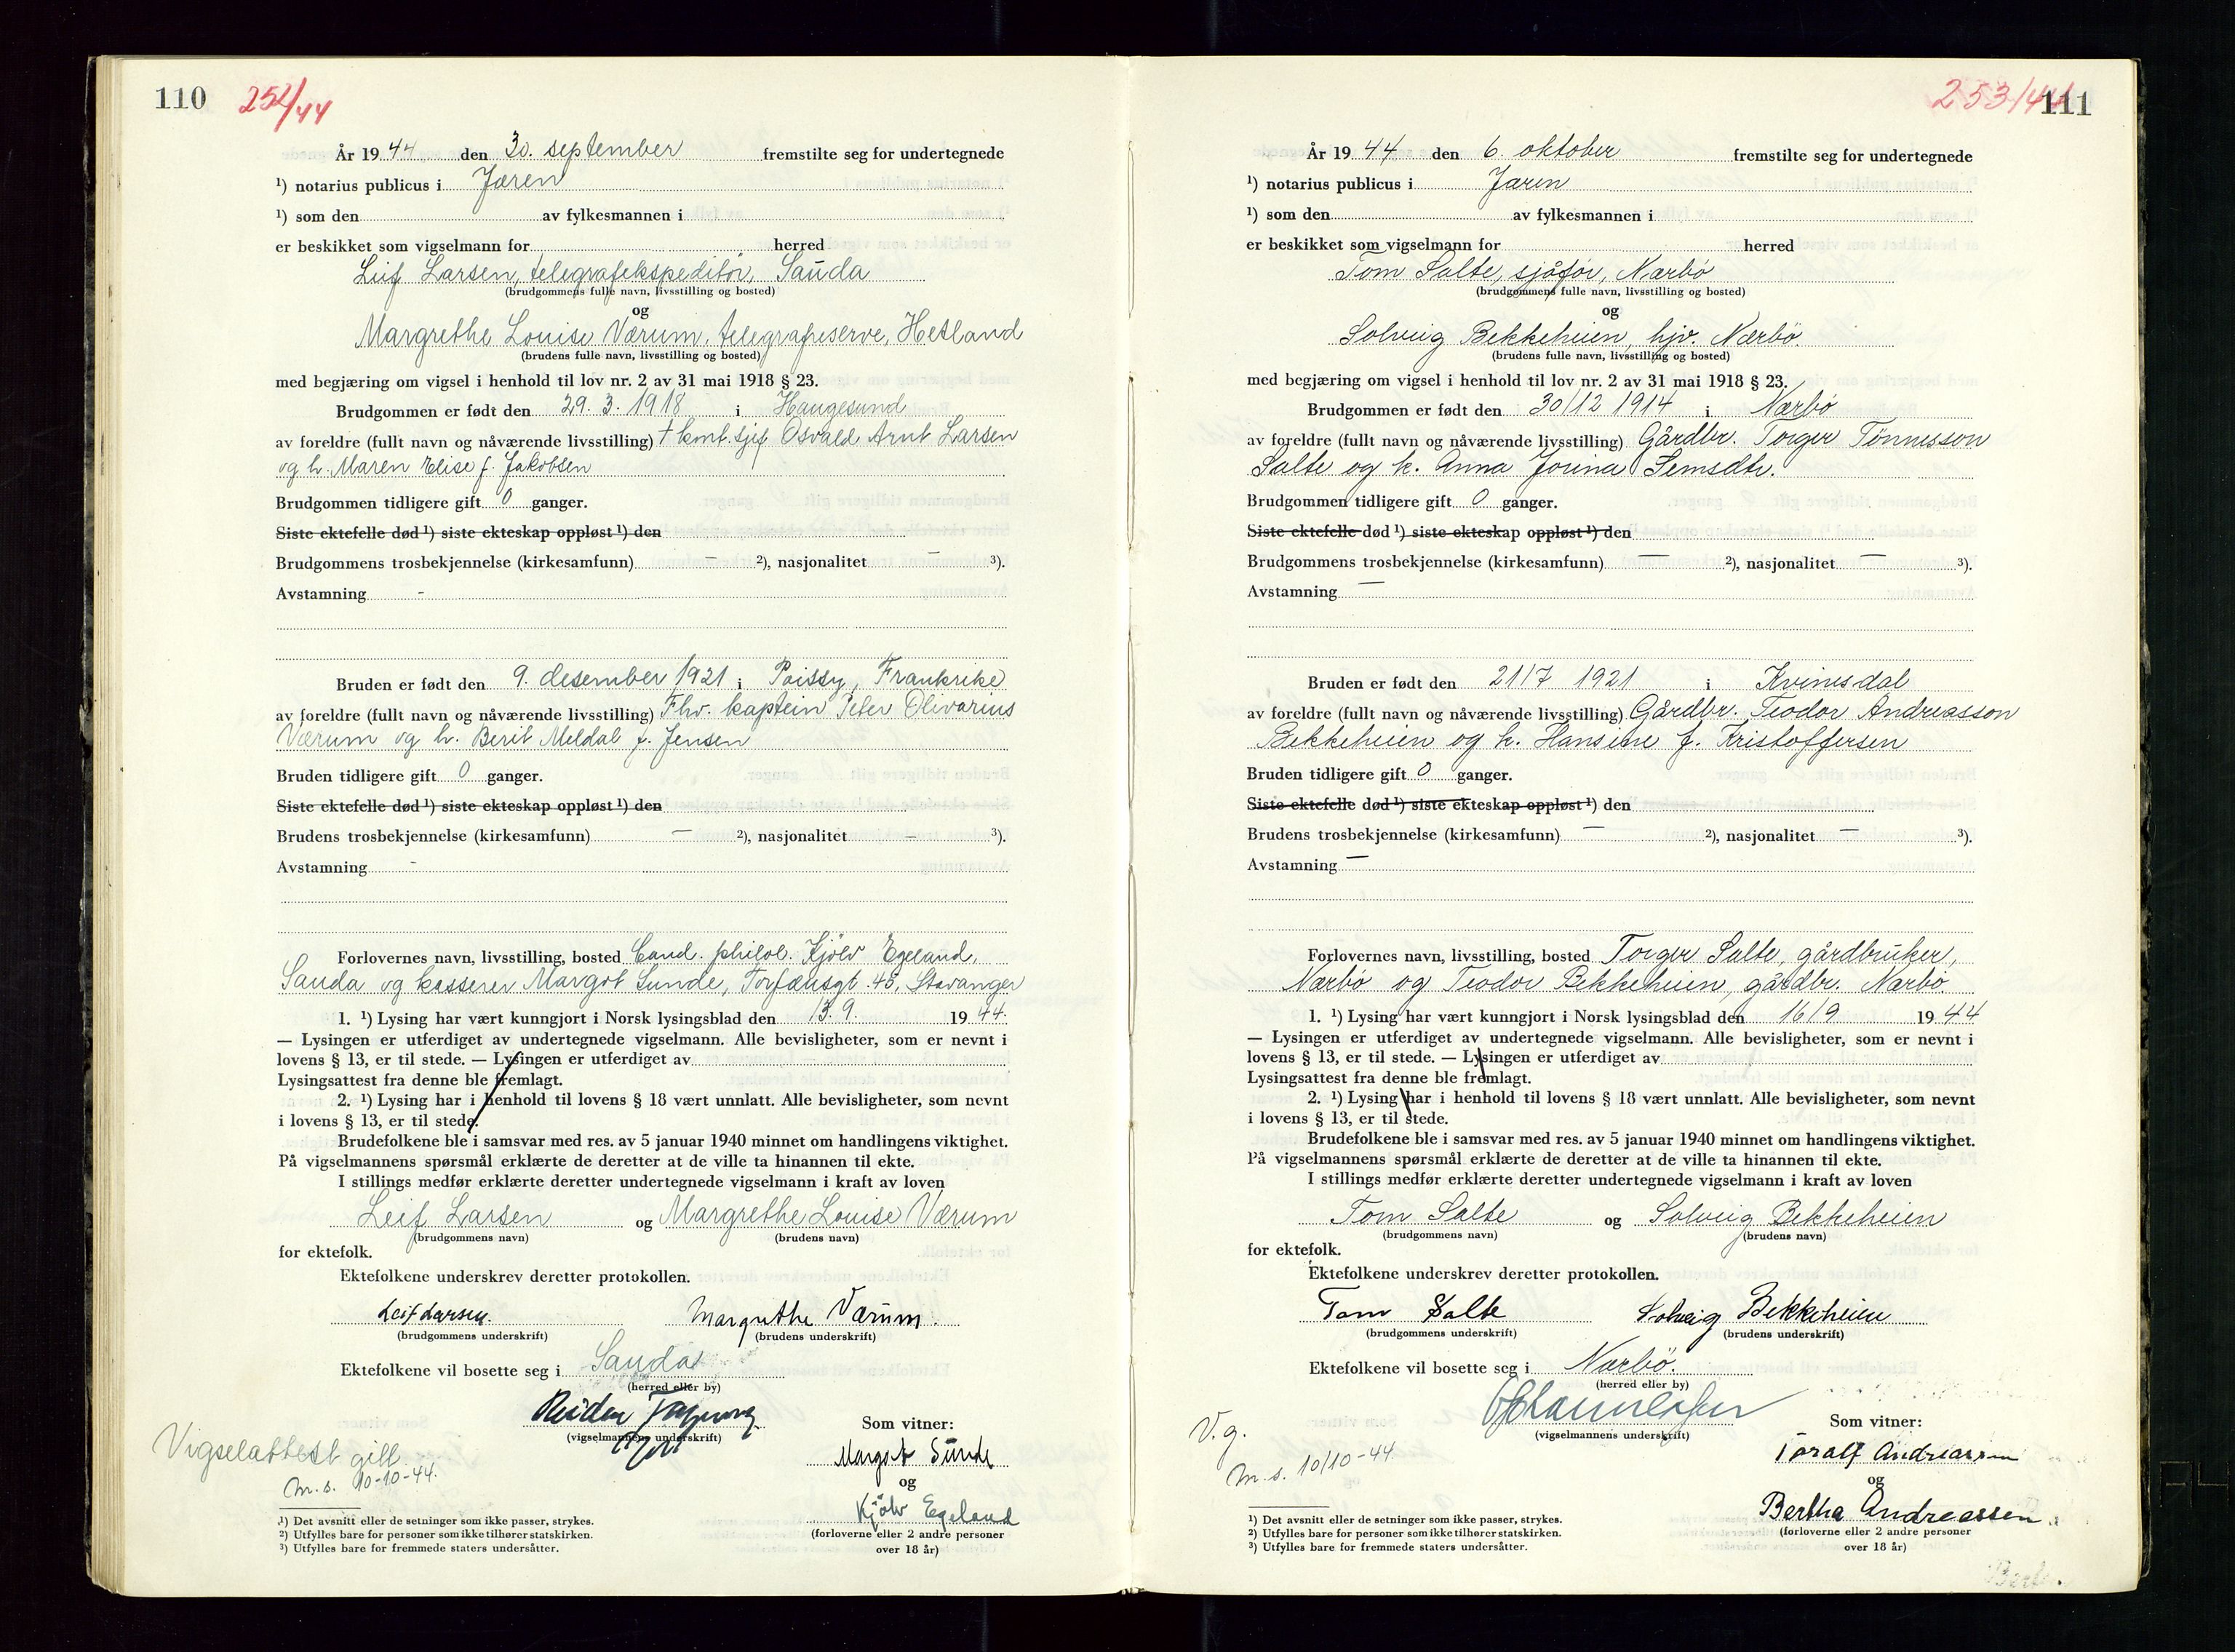 110 252/44
År 1944 den 30. september fremstilte seg for undertegnede
¹) notarius publicus i Jæren
¹) som den av fylkesmannen i
er beskikket som vigselmann for herred
Leif Larsen, telegrafekspeditör, Sauda
(brudgommens fulle navn, livsstilling og bosted)
og
Margrethe Louise Værum, telegrafreserve, Hetland
(brudens fulle navn, livsstilling og bosted)
med begjæring om vigsel i henhold til lov nr. 2 av 31 mai 1918 § 23.
Brudgommen er født den 29. 3. 1918 i Haugesund
av foreldre (fullt navn og nåværende livsstilling) † kont. sjef Osvald Arnt Larsen
og h. Maren Elise f. Jakobsen
Brudgommen tidligere gift 0 ganger.
Siste ektefelle død ¹) siste ekteskap oppløst ¹) den
Brudgommens trosbekjennelse (kirkesamfunn) — ²), nasjonalitet — ³).
Avstamning -
Bruden er født den 9. desember 1921 i Poissy, Frankrike
av foreldre (fullt navn og nåværende livsstilling) Fhv. kaptein Peter Olivarius
Værum og h. Berit Meldal f. Jensen
Bruden tidligere gift 0 ganger.
Siste ektefelle død ¹) siste ekteskap oppløst ¹) den
Brudens trosbekjennelse (kirkesamfunn) — ²), nasjonalitet — ³).
Avstamning -
Forlovernes navn, livsstilling, bosted Cand. philol. Kjölv Egeland,
Sauda og kasserer Margot Sunde, Torfæusgt. 45, Stavanger
1. ¹) Lysing har vært kunngjort i Norsk lysingsblad den 13. 9. 1944.
— Lysingen er utferdiget av undertegnede vigselmann. Alle bevisligheter, som er nevnt i
lovens § 13, er til stede. — Lysingen er utferdiget av
Lysingsattest fra denne ble fremlagt.
2. ¹) Lysing har i henhold til lovens § 18 vært unnlatt. Alle bevisligheter, som nevnt
i lovens § 13, er til stede.
Brudefolkene ble i samsvar med res. av 5 januar 1940 minnet om handlingens viktighet.
På vigselmannens spørsmål erklærte de deretter at de ville ta hinannen til ekte.
I stillings medfør erklærte deretter undertegnede vigselmann i kraft av loven
Leif Larsen og Margrethe Louise Værum
(brudgommens navn) (brudens navn)
for ektefolk.
Ektefolkene underskrev deretter protokollen.
Leif Larsen. Margrethe Værum.
(brudgommens underskrift) (brudens underskrift)
Ektefolkene vil bosette seg i Sauda
(herred eller by)
Reidar
(vigselmannens underskrift)
Som vitner:
Vigselattest gitt
Margot Sunde
m.s. 10-10-44.
og
Kjölv Egeland
(forloverne eller 2 andre personer
over 18 år)
¹) Det avsnitt eller de setninger som ikke passer, strykes.
²) Utfylles bare for personer som ikke tilhører statskirken.
³) Utfylles bare for fremmede staters undersåtter.
253/44 111
År 1944 den 6. oktober fremstilte seg for undertegnede
¹) notarius publicus i Jæren
¹) som den av fylkesmannen i
er beskikket som vigselmann for herred
Tom Salte, sjåför, Nærbö
(brudgommens fulle navn, livsstilling og bosted)
og
Solveig Bekkeheien, hjv. Nærbö.
(brudens fulle navn, livsstilling og bosted)
med begjæring om vigsel i henhold til lov nr. 2 av 31 mai 1918 § 23.
Brudgommen er født den 30/12 1914 i Nærbö
av foreldre (fullt navn og nåværende livsstilling) Gårdbr. Torger Tönnesson
Salte og k. Anna Jorina Semsdtr.
Brudgommen tidligere gift 0 ganger.
Siste ektefelle død ¹) siste ekteskap oppløst ¹) den
Brudgommens trosbekjennelse (kirkesamfunn) — ²), nasjonalitet — ³).
Avstamning —
Bruden er født den 21/7 1921 i Kvinesdal
av foreldre (fullt navn og nåværende livsstilling) Gårdbr. Teodor Andreasson
Bekkeheien og k. Hansine f. Kristoffersen
Bruden tidligere gift 0 ganger.
Siste ektefelle død ¹) siste ekteskap oppløst ¹) den
Brudens trosbekjennelse (kirkesamfunn) — ²), nasjonalitet — ³).
Avstamning —
Forlovernes navn, livsstilling, bosted Torger Salte, gårdbruker,
Nærbö og Teodor Bekkeheien, gårdbr. Nærbö
1. ¹) Lysing har vært kunngjort i Norsk lysingsblad den 16/9 1944
— Lysingen er utferdiget av undertegnede vigselmann. Alle bevisligheter, som er nevnt i
lovens § 13, er til stede. — Lysingen er utferdiget av
Lysingsattest fra denne ble fremlagt.
2. ¹) Lysing har i henhold til lovens § 18 vært unnlatt. Alle bevisligheter, som nevnt
i lovens § 13, er til stede.
Brudefolkene ble i samsvar med res. av 5 januar 1940 minnet om handlingens viktighet.
På vigselmannens spørsmål erklærte de deretter at de ville ta hinannen til ekte.
I stillings medfør erklærte deretter undertegnede vigselmann i kraft av loven
Tom Salte og Solveig Bekkeheien
(brudgommens navn) (brudens navn)
for ektefolk.
Ektefolkene underskrev deretter protokollen.
Tom Salte Solveig Bekkeheien
(brudgommens underskrift) (brudens underskrift)
Ektefolkene vil bosette seg i Nærbö.
(herred eller by)
(vigselmannens underskrift)
V.g.
Som vitner:
m.s. 10/10-44.
Toralf Andreassen
og
Bertha Andreassen
(forloverne eller 2 andre personer
over 18 år)
¹) Det avsnitt eller de setninger som ikke passer, strykes.
²) Utfylles bare for personer som ikke tilhører statskirken.
³) Utfylles bare for fremmede staters undersåtter.